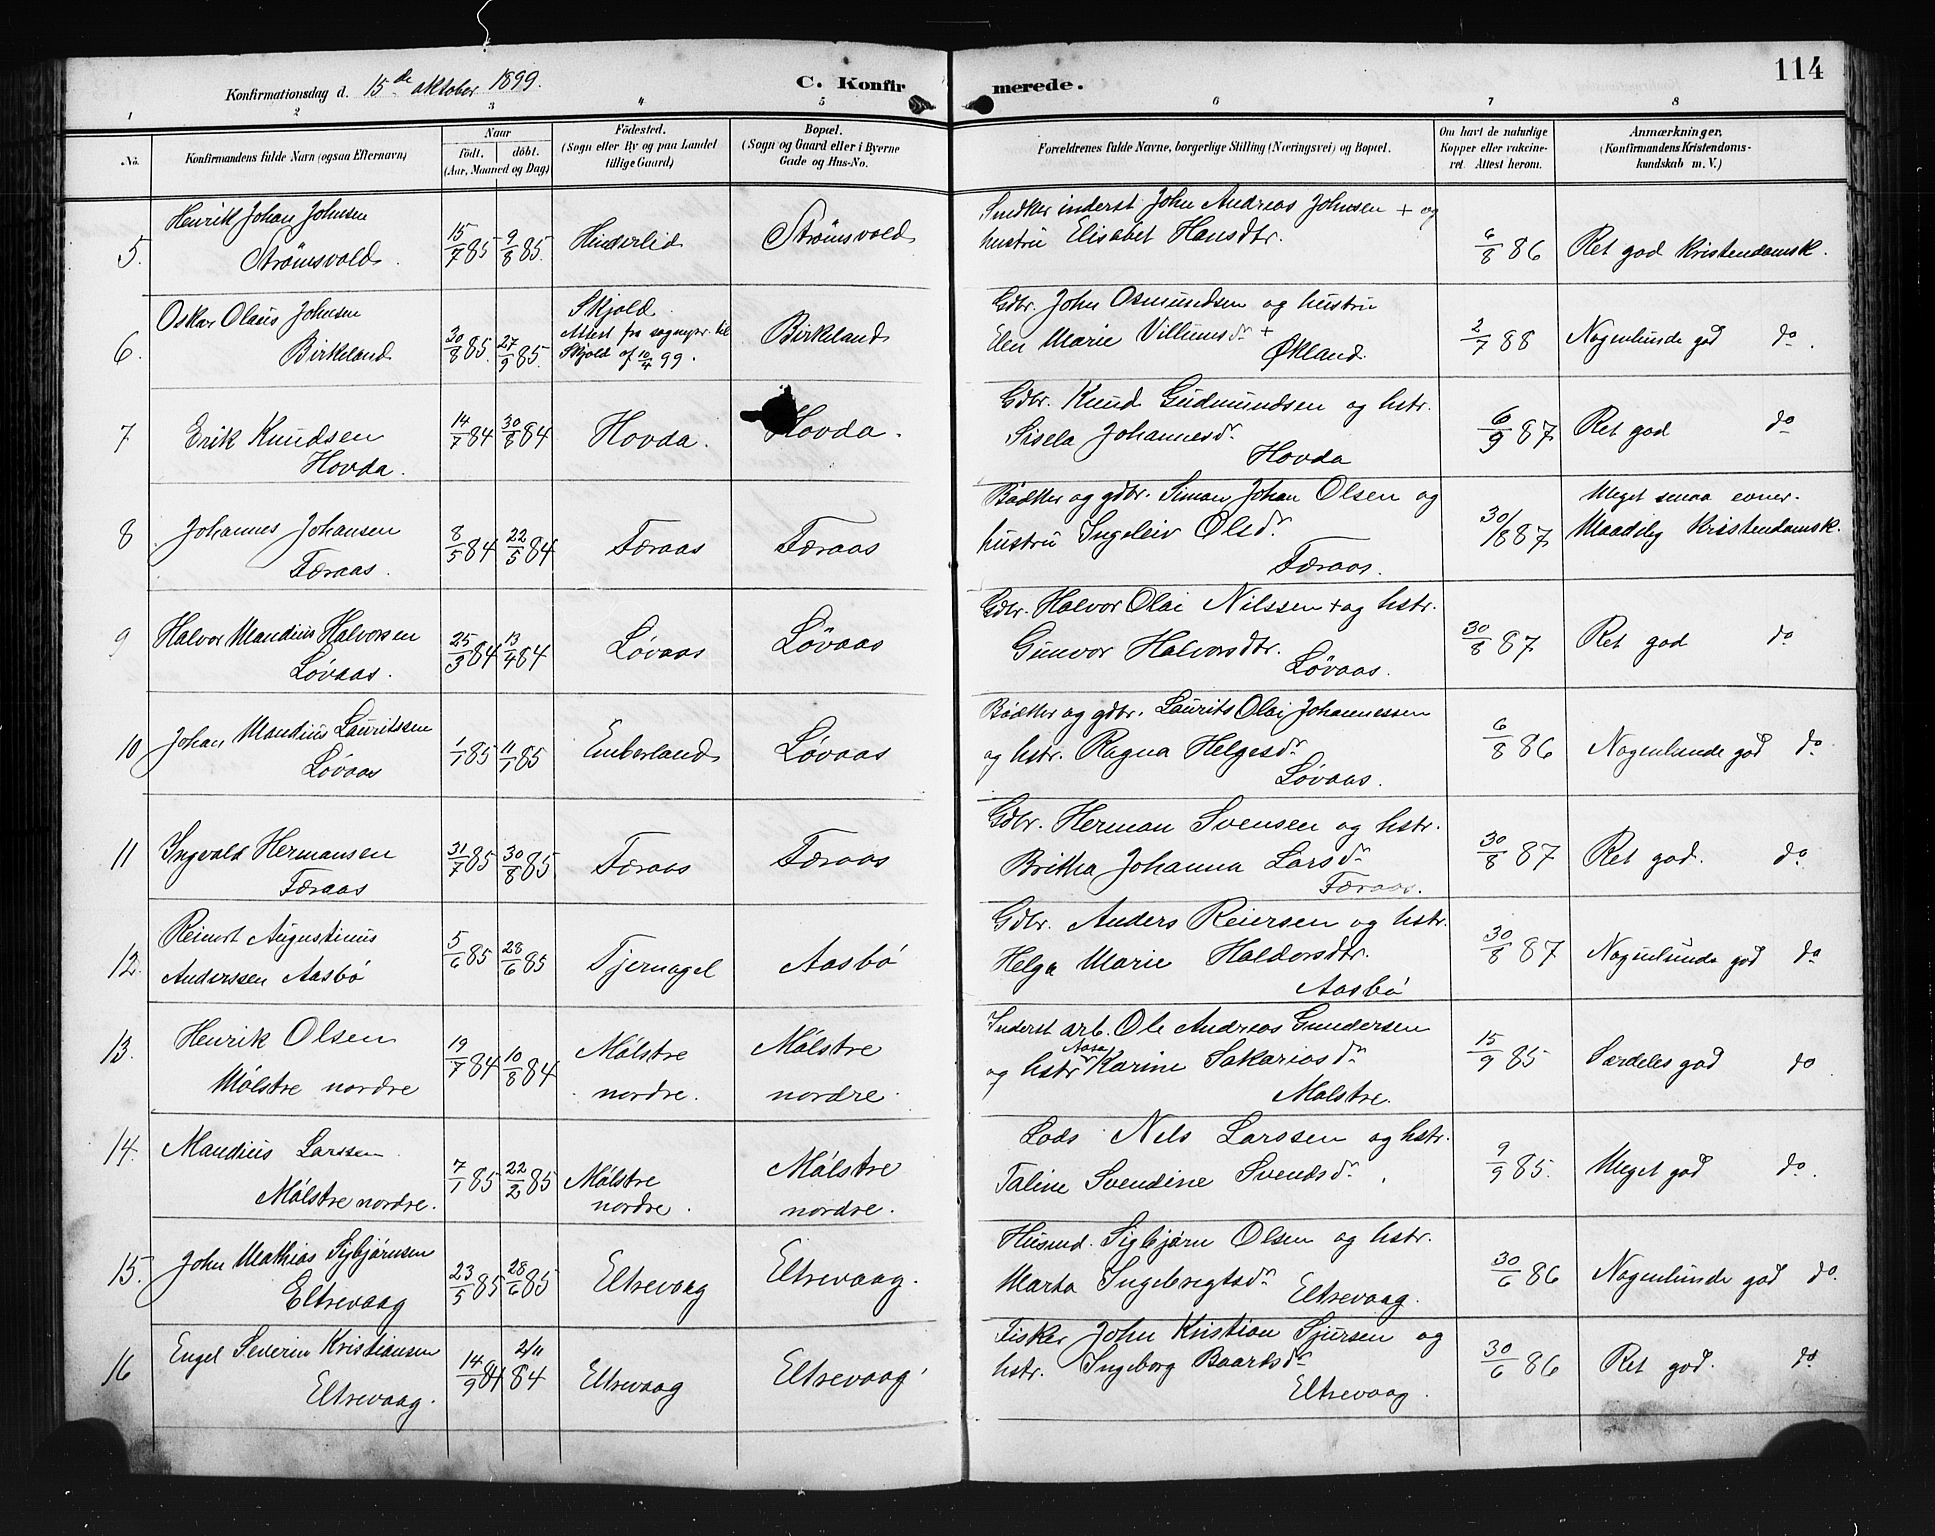 114
Konfirmationsdag d. 15de oktober 1899. C. Konfirmerede.
1 2 3 4 5 6 7 8
No. Konfirmandens fulde Navn (ogsaa Efternavn) Naar födt. döbt. (Aar, Maaned og Dag) Födested. (Sogn eller By og paa Landet tillige Gaard) Bopæl. (Sogn og Gaard eller i Byerne Gade og Hus-No. Forældrenes fulde Navne, borgerlige Stilling (Næringsvei) og Bopæl. Om havt de naturlige Kopper eller vakcineret. Attest herom. Anmærkninger. (Konfirmandens Kristendomskundskab m. V.)
5. Henrik Johan Johnsen Strømsvold. 15/7 85 9/8 85. Hinderlid Strømsvold Snedker inderst John Andreas Johnsen + og hustru Elisabet Hansdtr. 6/8 86 Ret god Kristendomsk.
6. Oskar Olaus Johnsen Birkeland 30/8 85. 27/9 85. Skjold. Attest fra sognepr. til Skjold af 10/4 99. Birkeland Gdbr. John Osmundsen og hustru Elen Marie Villumsdr + Økland. 2/7 88 Nogenlunde god do.
7 Erik Knudsen Hovda. 14/7 84 30/8 84 Hovda. Hovda. Gdbr. Knud Gudmundsen og hstr. Sisela Johannesdr Hovda 6/9 87. Ret god do
8 Johannes Johansen Færaas. 8/5 84 22/5 84 Færaas Færaas Bödker og gdbr. Simon Johan Olsen og hustru Ingeleiv Olsdr Færaas. 30/8 87. Meget smaa evner. Maadelig Kristendomsk.
9 Halvor Mandius Halvorsen Løvaas. 25/3 84 13/4 84 Løvaas Løvaas Gdbr. Halvor Olai Nilssen + og hstr. Gunvor Halvorsdtr. Løvaas. 30/8 87. Ret god do
10 Johan Mandius Lauritssen Løvaas 1/1 85 11/1 85 Emberland Løvaas Bödker og gdbr. Laurits Olai Johannessen og hstr. Ragna Helgesdr Løvaas. 6/8 86 Nogenlunde god do.
11 Ingvald Hermansen Færaas 31/7 85 30/8 85 Færaas Færaas Gdbr. Herman Svensen og hstr. Britha Johanna Larsdr Færaas. 30/8 87 Ret god. do
12. Reinert Augustinus Anderssen Aasbö 5/6 85 28/6 85 Tjernagel Aasbö Gdbr. Anders Reiersen og hstr. Helga Marie Haldorsdtr. Aasbö 30/8 87 Nogenlunde god do
13. Henrik Olsen Mölstre nordre 19/7 84 10/8 84 Mölstre nordre. Mölstre nordre. Inderst arb. Ole Andreas Gundersen og hstr Aasa Karine Sakariasdr Mölstre. 15/9 85 Særdeles god do.
14. Mandius Larssen Mölstre nordre. 7/1 85 22/2 85 Mölstre nordre. Mölstre nordre. Lods Nils Larssen og hstr. Taline Svendine Svendsdr. 9/9 85. Meget god do.
15. John Mathias Sigbjørnsen Eltrevaag 23/5 85 28/6 85 Eltrevaag Eltrevaag. Husmd. Sigbjørn Olsen og hstr. Marta Ingebregtsdr Eltrevaag. 30/6 86 Nogenlunde god do.
16 Engel Severin Kristiansen Eltrevaag. 14/9 84 2/11 84 Eltrevaag Eltrevaag. Fisker John Kristian Sjursen og hstr. Ingeborg Baardsdr Eltrevaag. 30/6 86 Ret god. do